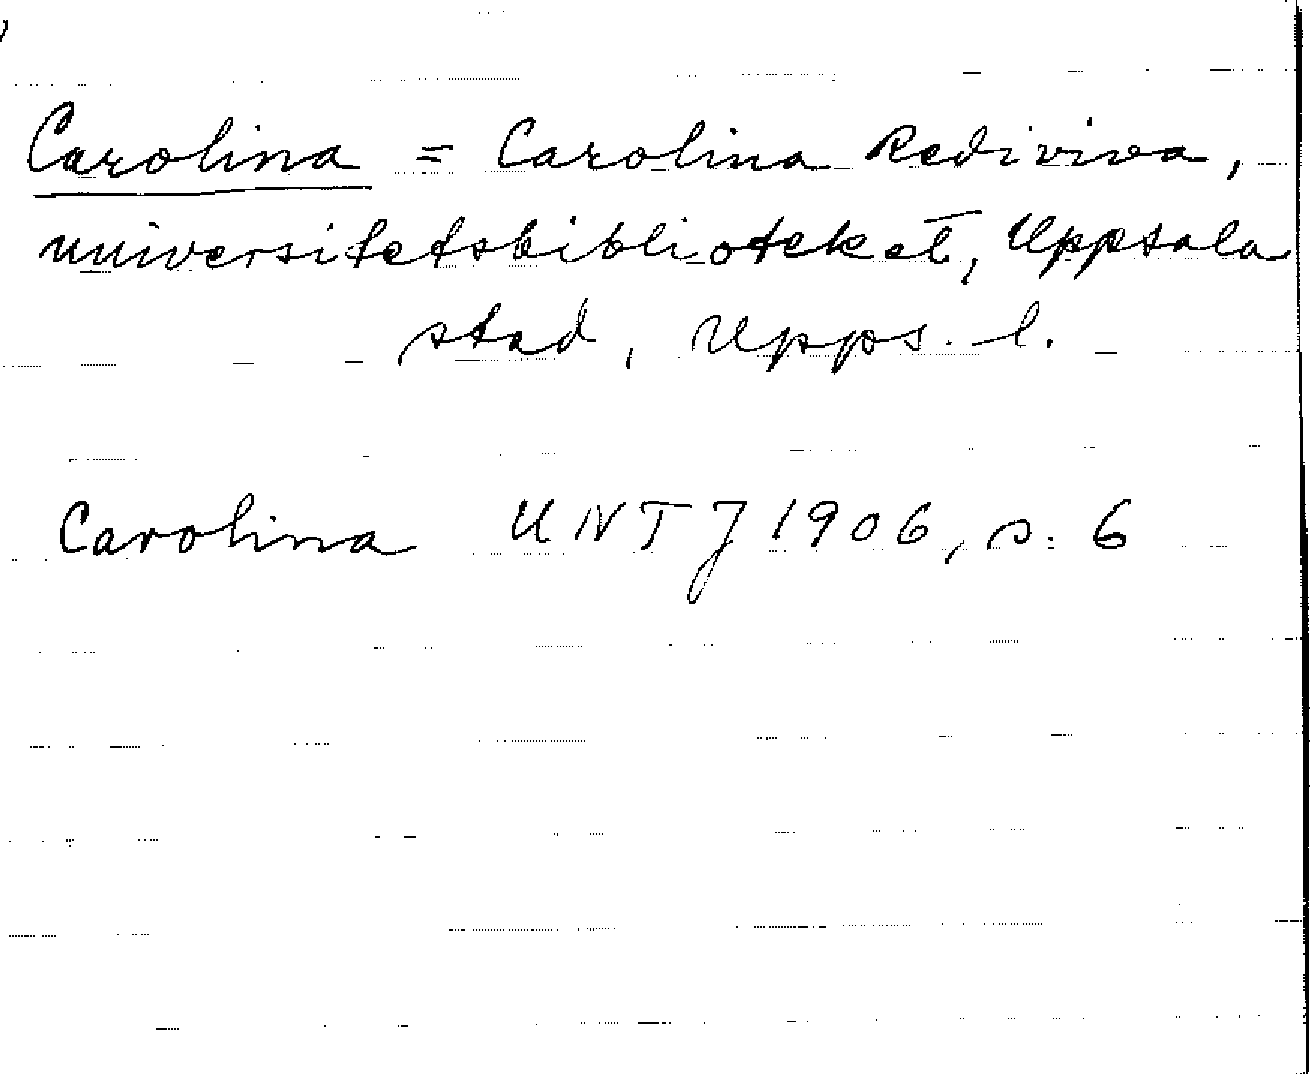 Carolina = Carolina Rediviva,
universitetsbiblioteket, Uppsala
stad, Upps. l.
Carolina UNTJ 1906, s. 6